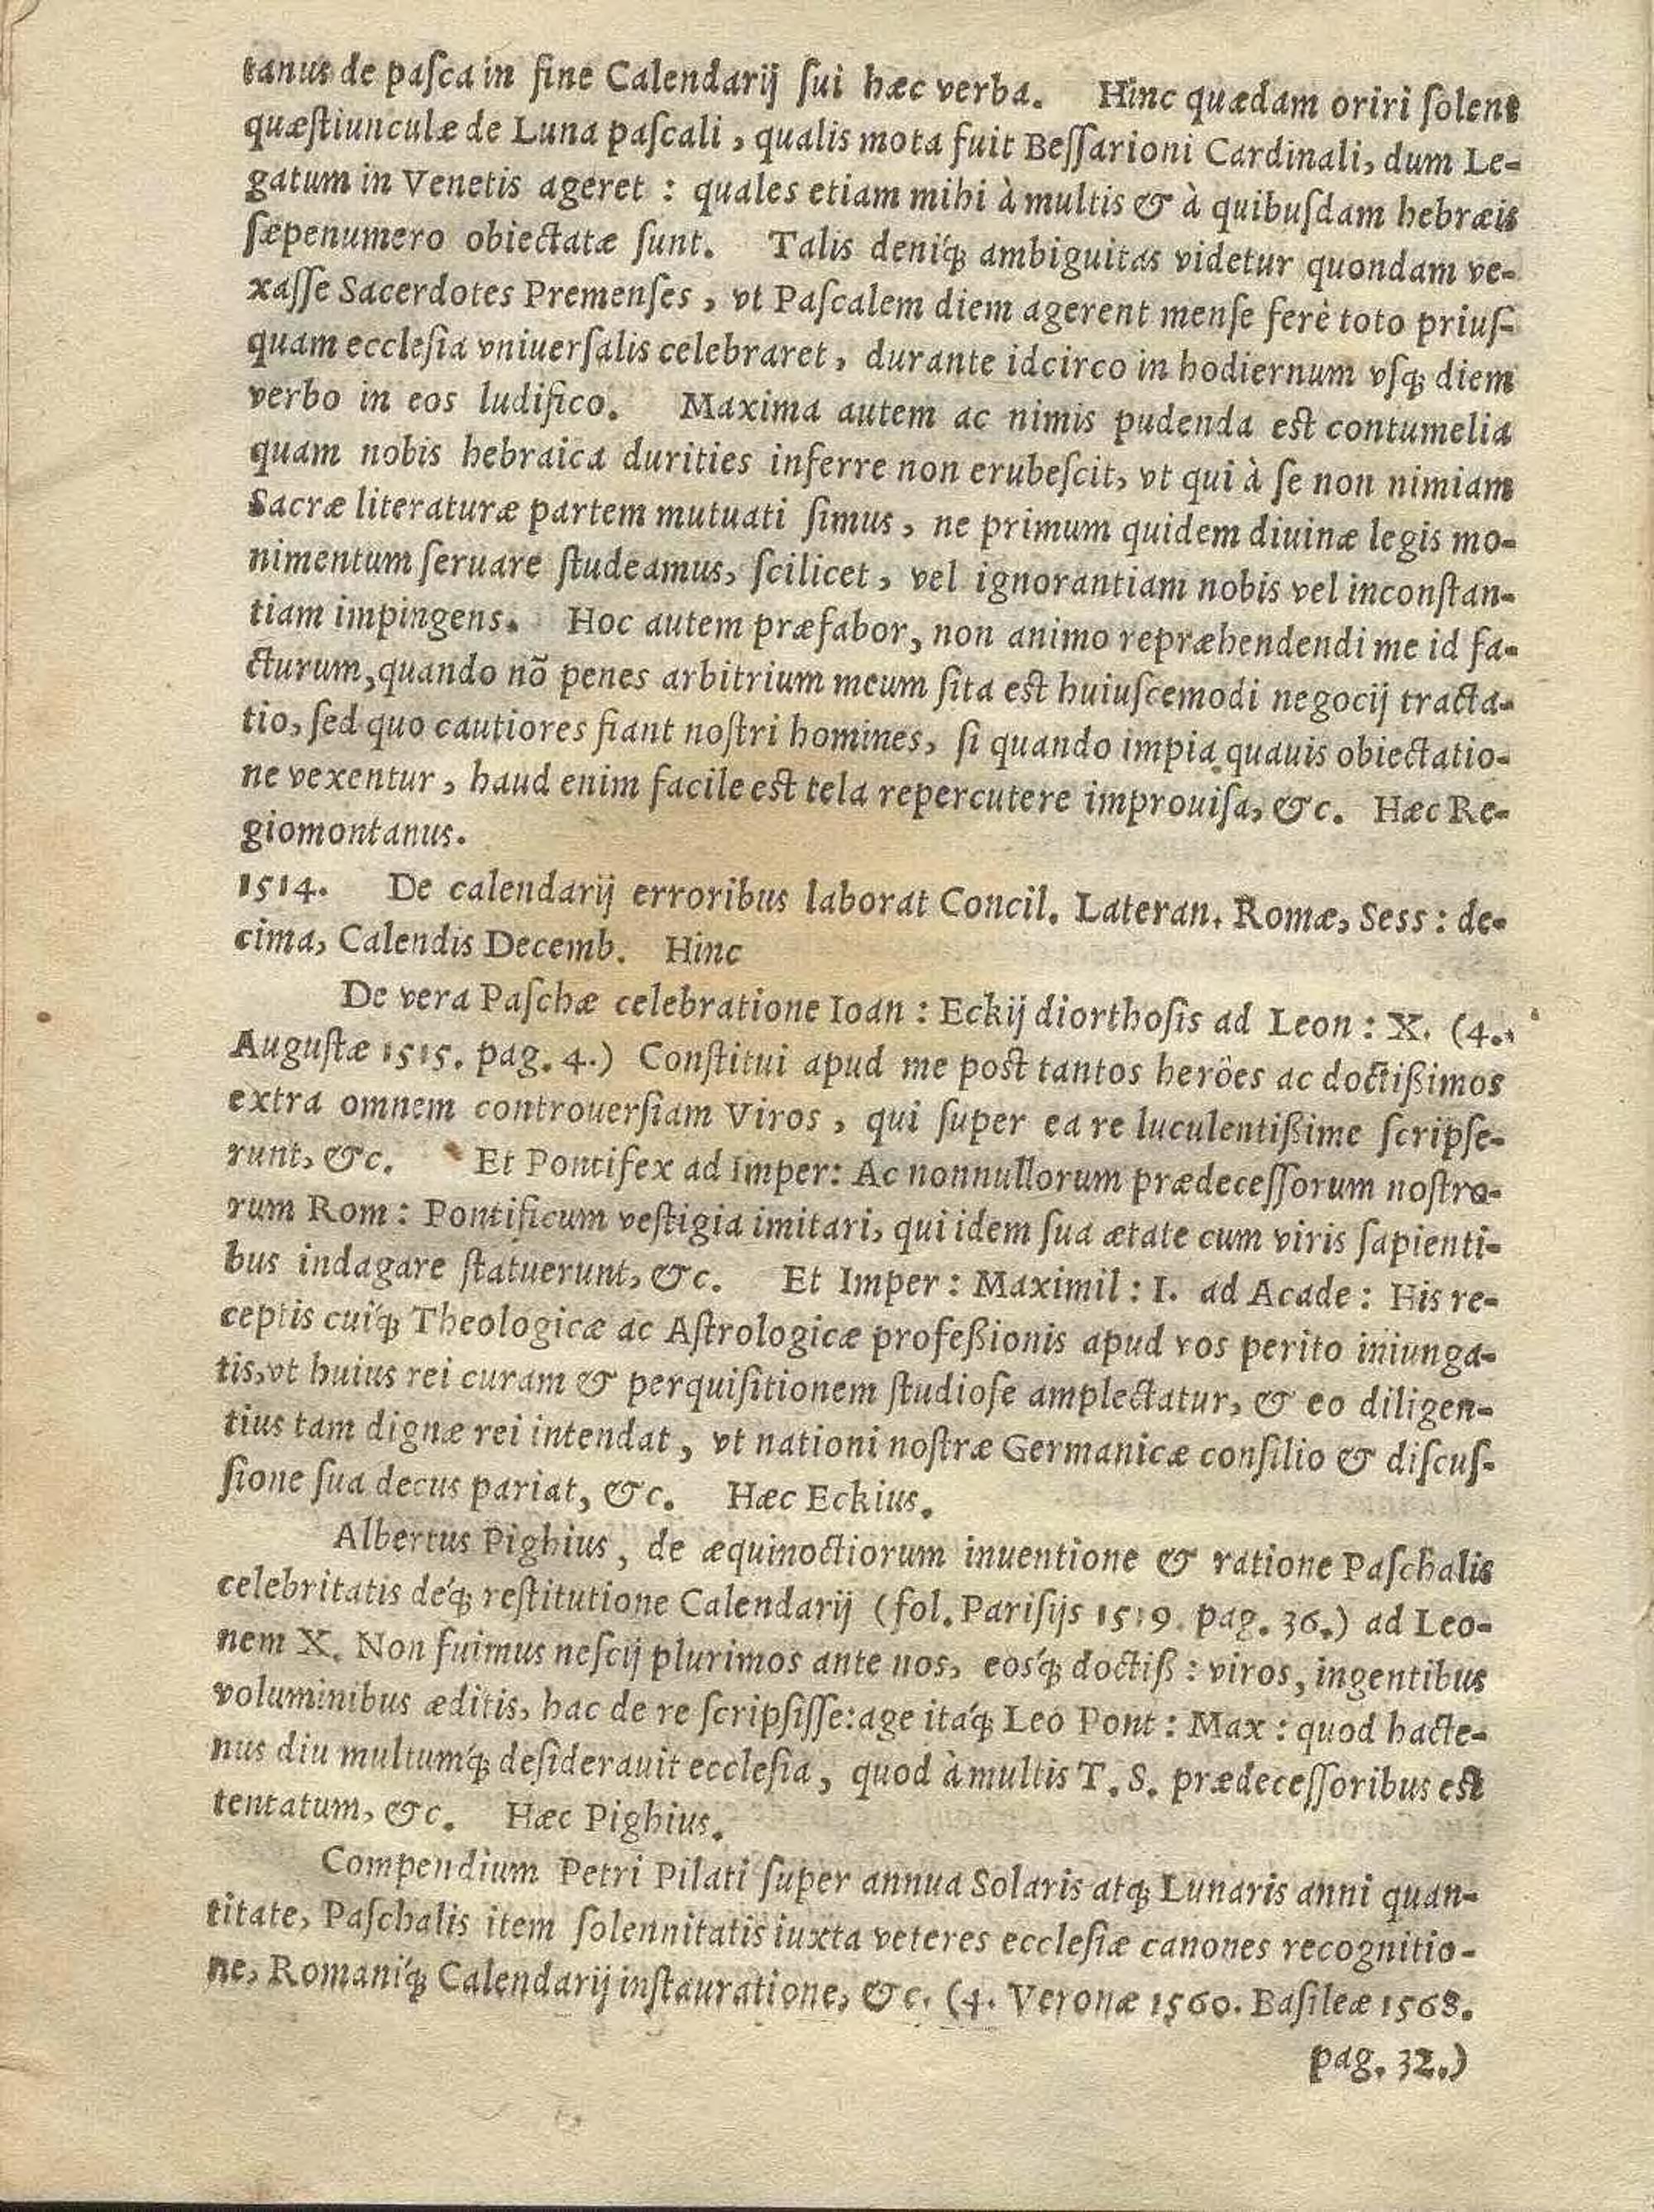 tanus de paſca in fine Calendarij ſui hæc verba. Hinc quædam oriri ſolent
quæſtiunculæ de Luna paſcali, qualis mota fuit Beſſarioni Cardinali, dum Le-
gatum in Venetis ageret: quales etiam mihi à multis & à quibuſdam hebræis
ſæpenumero obiectatæ ſunt. Talis deniq́ꝫ ambiguitas videtur quondam ve-
xaſſe Sacerdotes Premenſes, vt Paſcalem diem agerent menſe ferè toto priuſ-
quam eccleſia vniuerſalis celebraret, durante idcirco in hodiernum vſqꝫ diem
verbo in eos ludifico. Maxima autem ac nimis pudenda est contumelia
quam nobis hebraica durities inferre non erubeſcit, vt qui à ſe non nimiam
Sacræ literaturæ partem mutuati ſimus, ne primum quidem diuinæ legis mo-
nimentum ſeruare ſtudeamus, ſcilicet, vel ignorantiam nobis vel inconſtan-
tiam impingens. Hoc autem præfabor, non animo repræhendendi me id fa-
cturum, quando nõ penes arbitrium meum ſita est huiuſcemodi negocij tracta-
tio, ſed quo cautiores fiant noſtri homines, ſi quando impia quauis obiectatio-
ne vexentur, haud enim facile est tela repercutere improuiſa, &c. Hæc Re-
giomontanus.
1514. De calendarij erroribus laborat Concil. Lateran. Romæ, Sess: de-
cima, Calendis Decemb. Hinc
De vera Paſchæ celebratione Ioan: Eckij diorthoſis ad Leon: X. (4.
Auguſtæ 1515. pag. 4.) Conſtitui apud me post tantos herôes ac doctißimos
extra omnem controuerſiam Viros, qui ſuper ea re luculentißime ſcripſe-
runt, &c. Et Pontifex ad Imper: Ac nonnullorum prædeceſſorum noſtro-
rum Rom: Pontificum veſtigia imitari, qui idem ſua ætate cum viris ſapienti-
bus indagare ſtatuerunt, &c. Et Imper: Maximil: I. ad Acade: His re-
ceptis cuiq́ꝫ Theologicæ ac Aſtrologicæ profeßionis apud vos perito iniunga-
tis, vt huius rei curam & perquiſitionem ſtudioſe amplectatur, & eo diligen-
tius tam dignæ rei intendat, vt nationi noſtræ Germanicæ conſilio & diſcuſ-
ſione ſua decus pariat, &c. Hæc Eckius.
Albertus Pighius, de æquinoctiorum inuentione & ratione Paſchalis
celebritatis deq́ꝫ reſtitutione Calendarij (fol. Pariſijs 1519. pag. 36.) ad Leo-
nem X. Non fuimus neſcij plurimos ante nos, eosq́ꝫ doctiß: viros, ingentibus
voluminibus æditis, hac de re ſcripſiſſe: age itaq́ꝫ Leo Pont: Max: quod hacte-
nus diu multumq́ꝫ deſiderauit eccleſia, quod à multis T. S. prædeceſſoribus est
tentatum, &c. Hæc Pighius.
Compendium Petri Pilati ſuper annua Solaris atqꝫ Lunaris anni quan-
titate, Paſchalis item ſolennitatis iuxta veteres eccleſiæ canones recognitio-
ne, Romaniq́ꝫ Calendarij inſtauratione, &c. (4. Veronæ 1560. Baſileæ 1568.
pag. 32.)